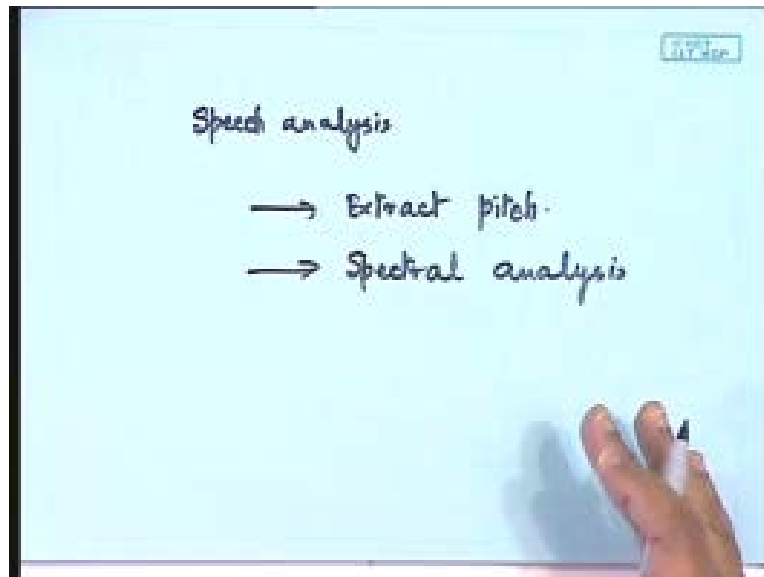 Speech analysis
→ Extract pitch.
→ Spectral analysis